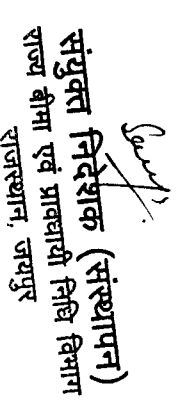 संयुक्त निदेशक (संस्थापन)
राज्य बीमा एवं प्रावधायी निधि विभाग
राजस्थान, जयपुर